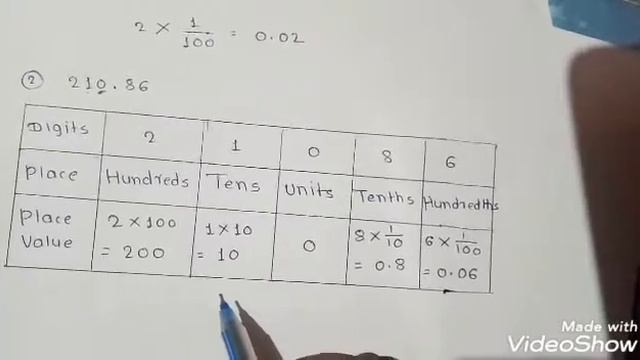 2 × 1/100 = 0.02
② 210.86
Digits 2 1 0 8 6
Place Hundreds Tens Units Tenths Hundredths
Place Value 2 × 100 = 200 1 × 10 = 10 0 8 × 1/10 = 0.8 6 × 1/100 = 0.06
Made with
VideoShow